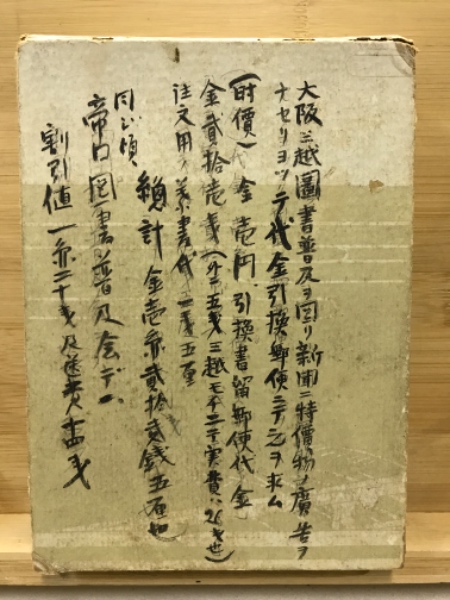 大阪三越圖書普及ヲ図リ新聞ニ特價物ノ廣告ヲ
ナセリヨツテ代金引換郵便ニテ之ヲ求ム
(時價)金壱円、引換書留郵便代金
金貳拾壱銭(外ニ五銭三越モチニテ実費ハ26銭也)
注文用ノ葉書代一銭五厘
總計金壱円貳拾貳銭五厘也
同ジ頃、
帝国図書普及会デハ
割引値一円二十銭及送費十四銭